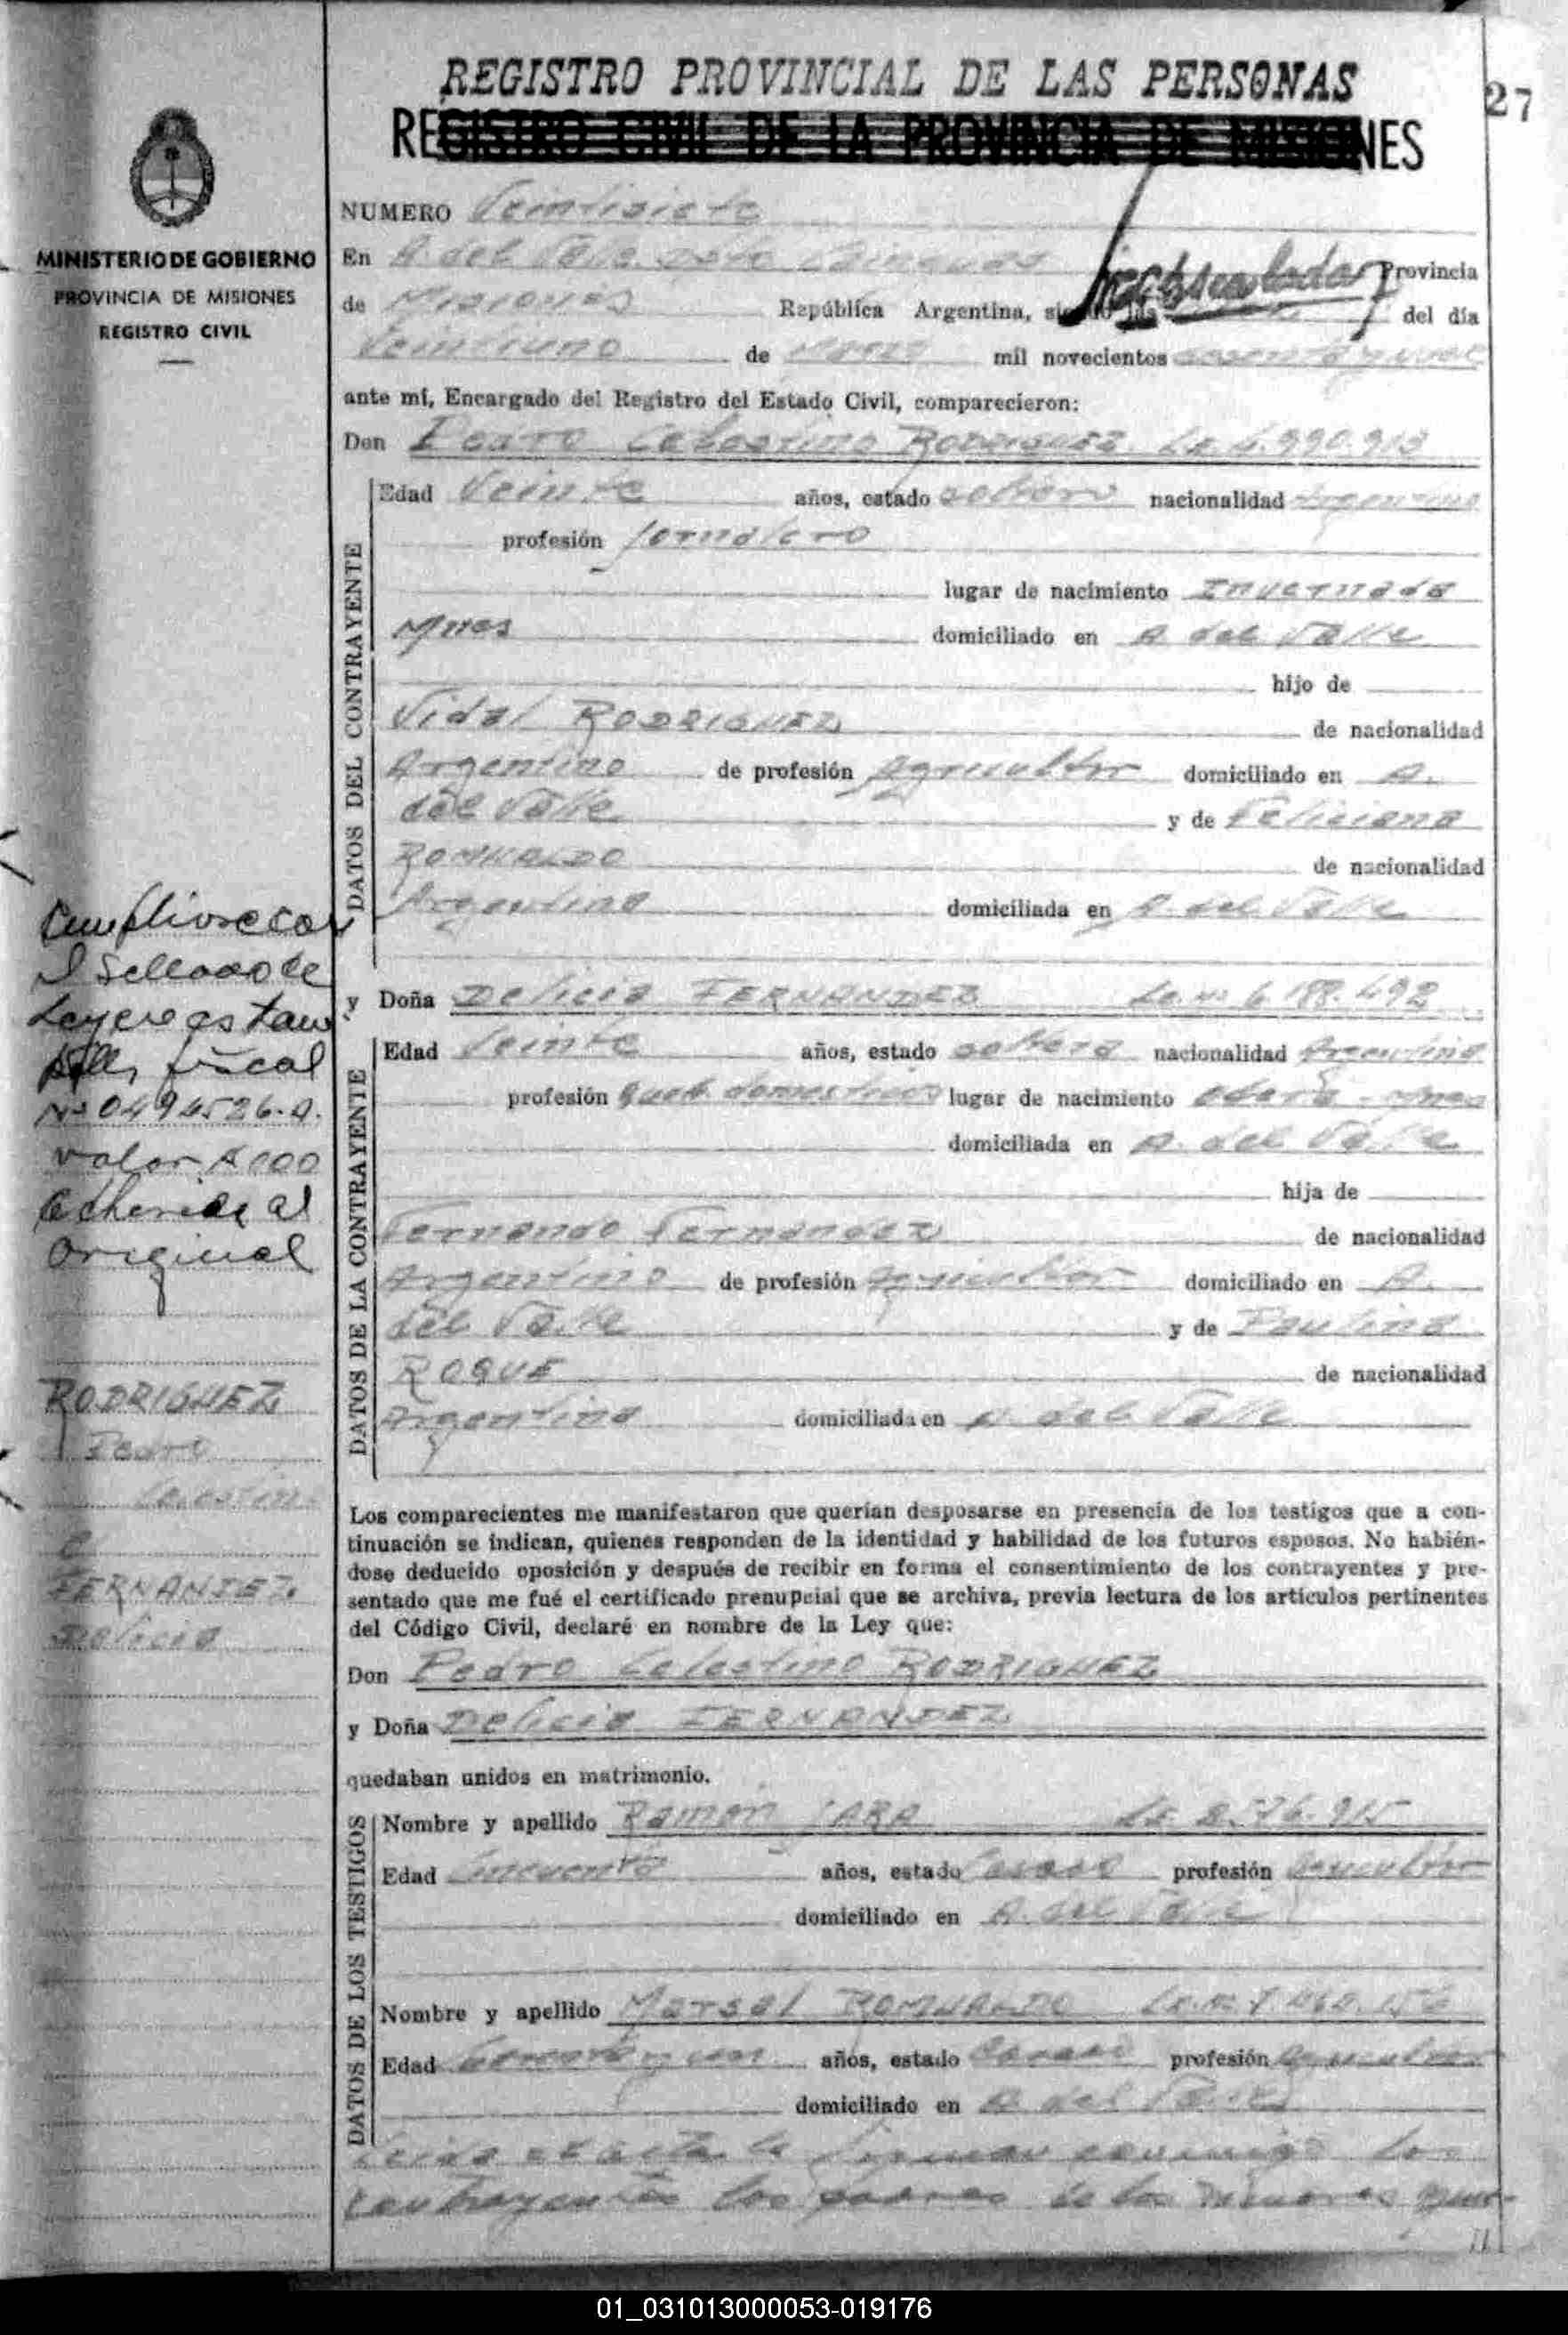 REGISTRO PROVINCIAL DE LAS PERSONAS
27
REGISTRO CIVIL DE LA PROVINCIA DE MISIONES
MINISTERIO DE GOBIERNO
PROVINCIA DE MISIONES
REGISTRO CIVIL
NUMERO Veintisiete
En A. del Valle Provincia
de Misiones República Argentina, siendo las del día
Veintiuno de Marzo mil novecientos sesenta y
ante mí, Encargado del Registro del Estado Civil, comparecieron:
Don Pedro Celestino RODRIGUEZ
DATOS DEL CONTRAYENTE
Edad Veinte años, estado soltero nacionalidad Argentino
profesión Jornalero
lugar de nacimiento Invernada
Mnes domiciliado en A. del Valle
hijo de
Vidal RODRIGUEZ de nacionalidad
Argentino de profesión Agricultor domiciliado en A.
del Valle y de Feliciana
ROMUALDO de nacionalidad
Argentina domiciliada en A. del Valle
y Doña Delicia FERNANDEZ
DATOS DE LA CONTRAYENTE
Edad Veinte años, estado soltera nacionalidad Argentina
profesión domesticos lugar de nacimiento Oberá - Mnes
domiciliada en A. del Valle
hija de
Fernando Fernandez de nacionalidad
Argentino de profesión Agricultor domiciliado en A.
del Valle y de Paulina
ROQUE de nacionalidad
Argentina domiciliada en A. del Valle
Los comparecientes me manifestaron que querían desposarse en presencia de los testigos que a con-
tinuación se indican, quienes responden de la identidad y habilidad de los futuros esposos. No habién-
dose deducido oposición y después de recibir en forma el consentimiento de los contrayentes y pre-
sentado que me fué el certificado prenupcial que se archiva, previa lectura de los artículos pertinentes
del Código Civil, declaré en nombre de la Ley que:
Don Pedro Celestino RODRIGUEZ
y Doña Delicia FERNANDEZ
quedaban unidos en matrimonio.
DATOS DE LOS TESTIGOS
Nombre y apellido Ramon JARA
Edad Cincuenta años, estado Casado profesión Agricultor
domiciliado en A. del Valle
Nombre y apellido Marsal ROMUALDO
Edad años, estado Casado profesión Agricultor
domiciliado en A. del Valle
Leida el acta la firman conmigo los
contrayentes los padres de los menores
Cumpliose con
el Sellado de
Ley
fiscal
valor
adherida al
Original
RODRIGUEZ
Pedro
Celestino
C
FERNANDEZ
Delicia
01_031013000053-019176